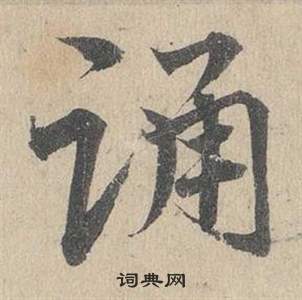 诵
词典网